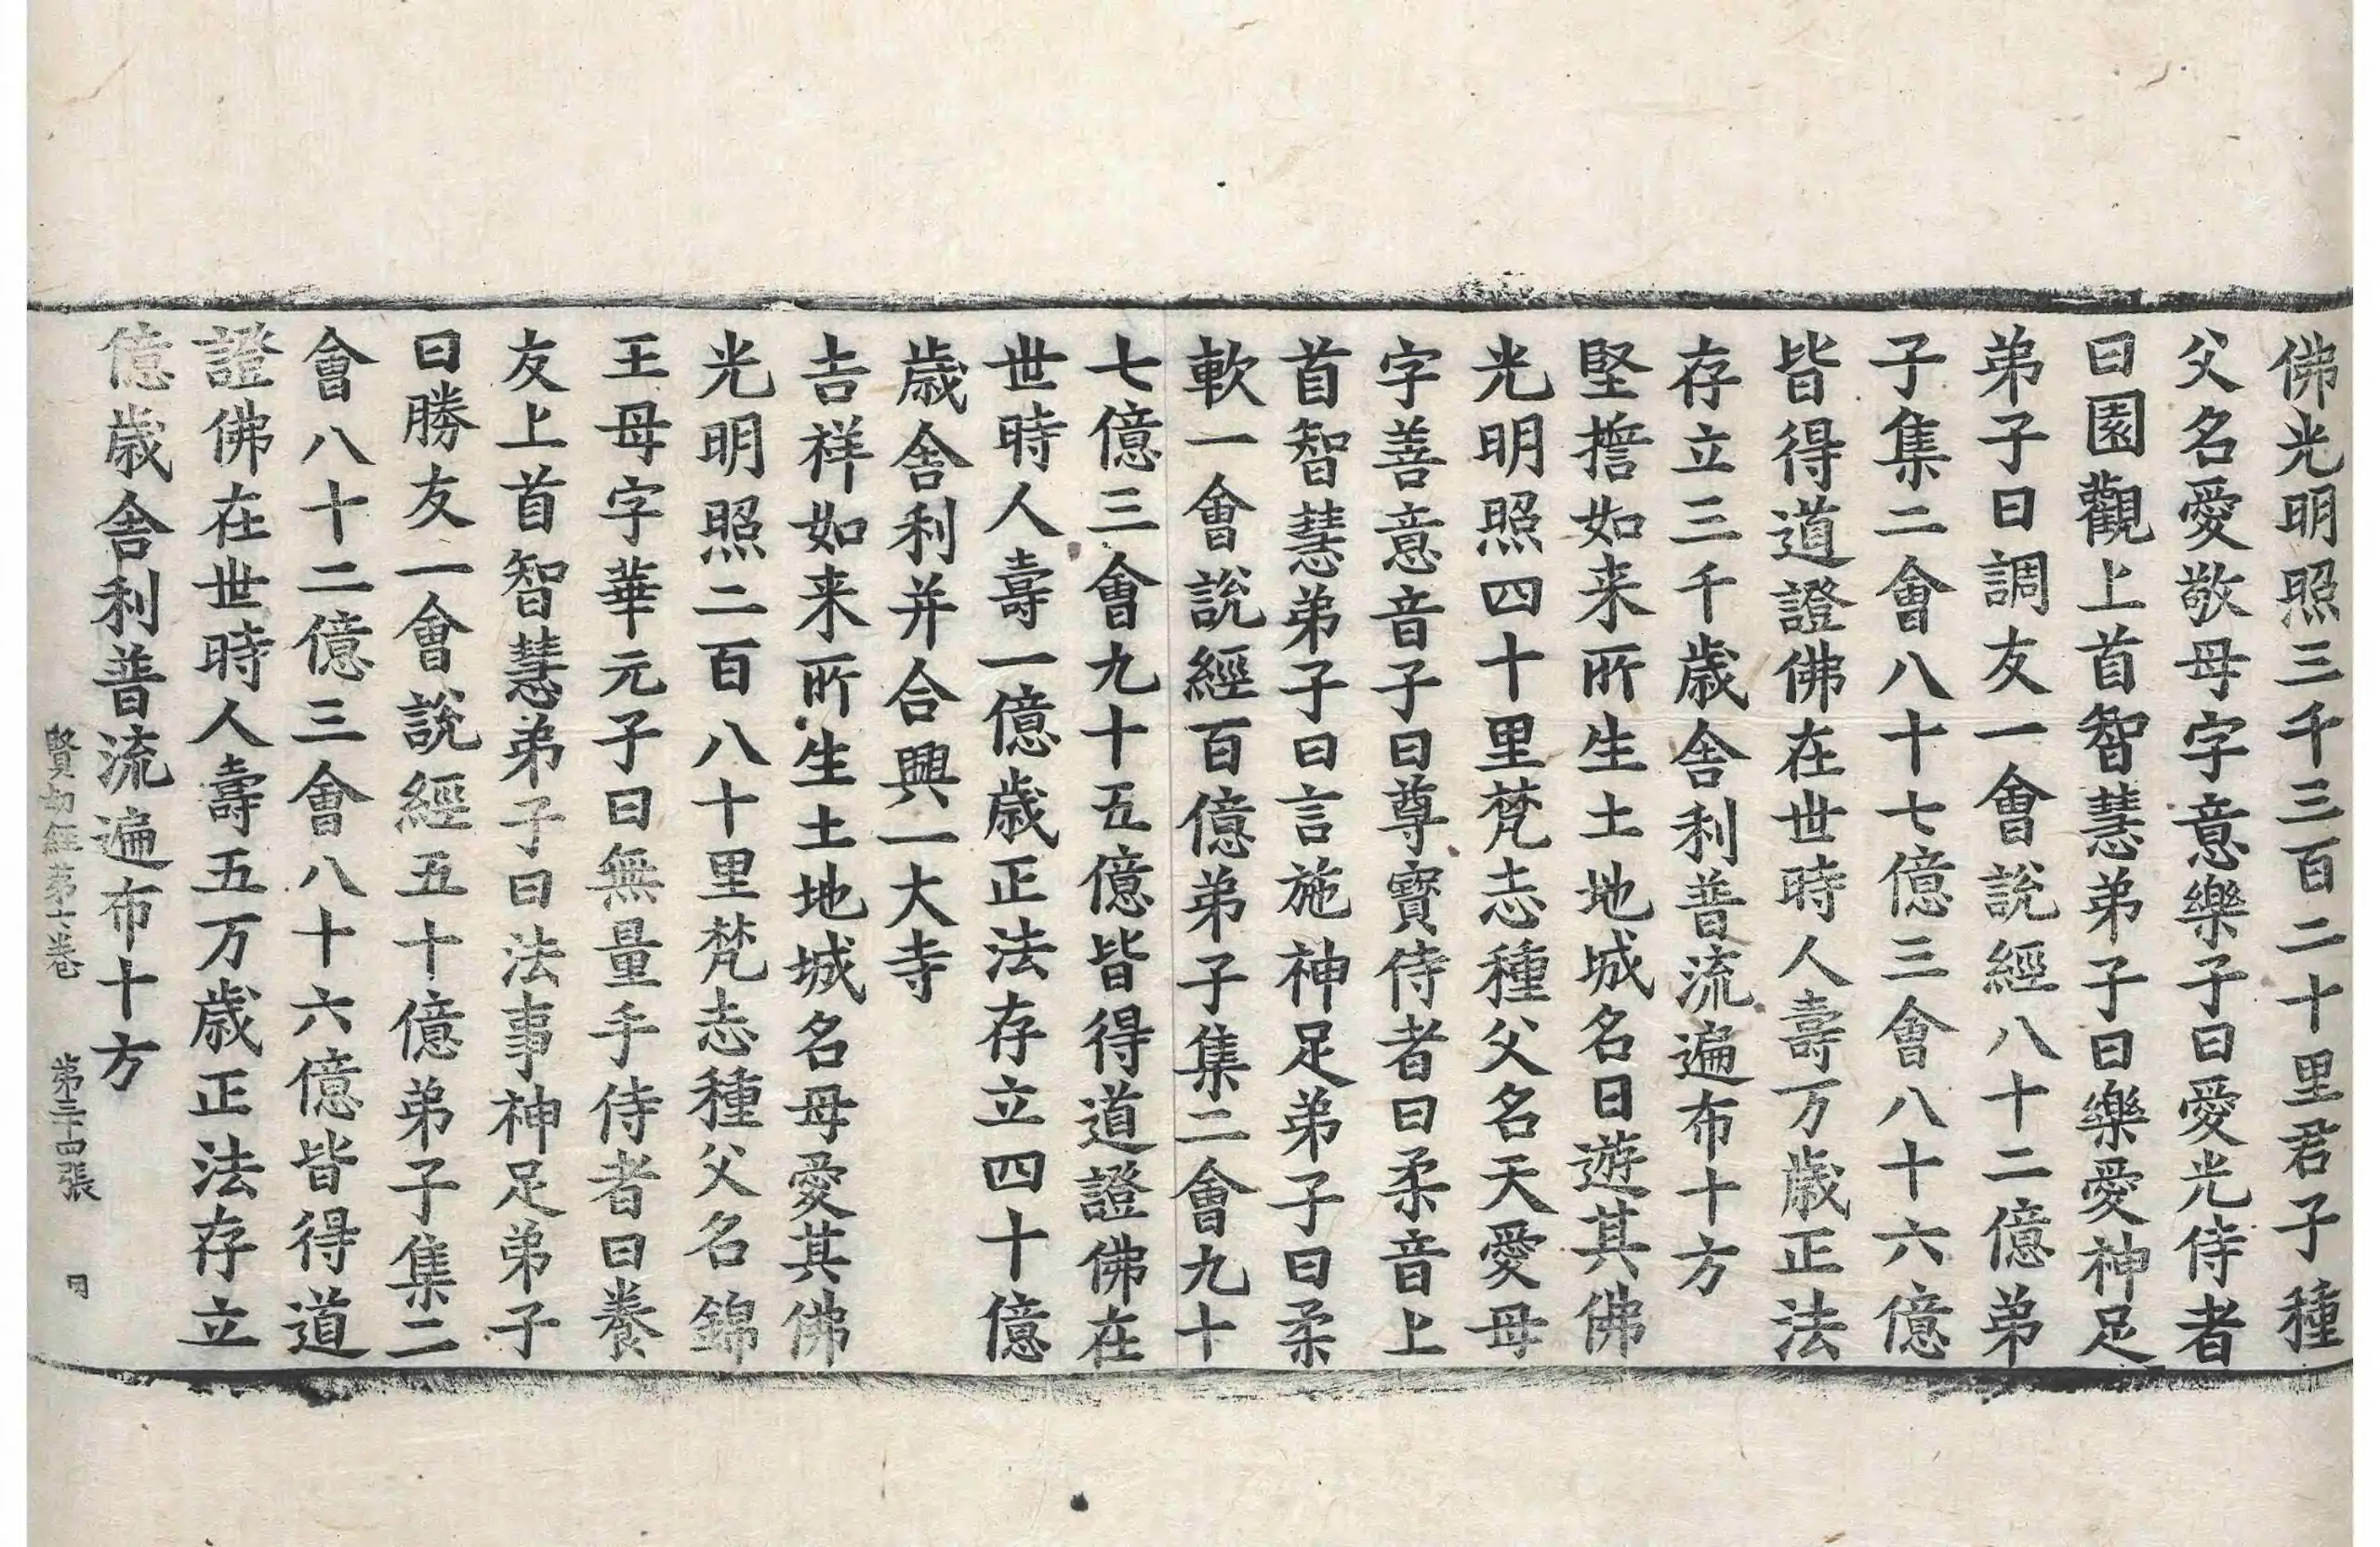 佛光明照三千三百二十里君子種
父名愛敬母字意樂子曰愛光侍者
曰園觀上首智慧弟子曰樂愛神足
弟子曰調友一會說經八十二億弟
子集二會八十七億三會八十六億
皆得道證佛在世時人壽万歲正法
存立三千歲舍利普流遍布十方
堅擔如来所生土地城名曰遊其佛
光明照四十里梵志種父名天愛母
字善意音子曰尊寳侍者曰柔音上
首智慧弟子曰言施神足弟子曰柔
軟一會說經百億弟子集二會九十
七億三會九十五億皆得道證佛在
世時人壽一億歲正法存立四十億
歲舍利并合興一大寺
吉祥如来所生土地城名母愛其佛
光明照二百八十里梵志種父名錦
王母字華元子曰無量手侍者曰養
友上首智慧弟子曰法事神足弟子
曰勝友一會說經五十億弟子集二
會八十二億三會八十六億皆得道
證佛在世時人壽五万歲正法存立
億歲舍利普流遍布十方
賢劫經第十卷 第三十四張